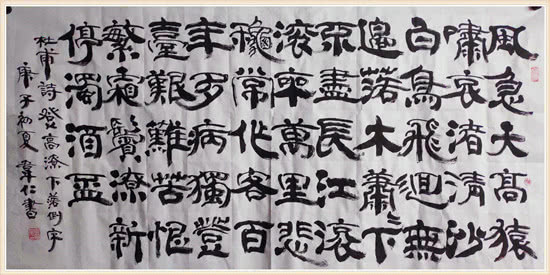 風急天高猿
嘯哀渚清沙
白鳥飛迴無
邊落木蕭〻下
不盡長江滾
滾來萬里悲
龝常作客百
年多病獨登
臺艱難苦恨
繁霜鬢潦新
停濁酒盃
杜甫詩登高潦下落倒字
庚子初夏仁書